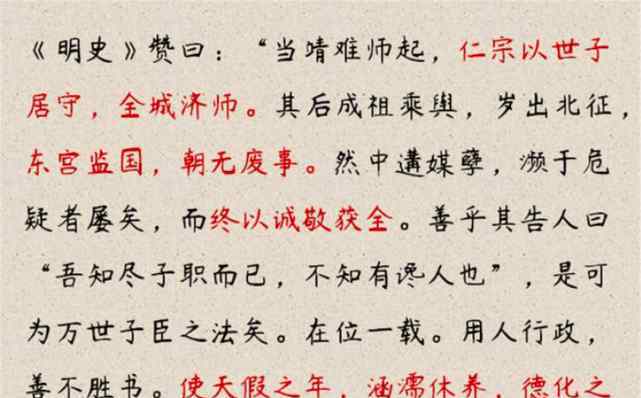 《明史》赞曰：“当靖难师起，仁宗以世子
居守，全城济师。其后成祖乘舆，岁出北征，
东宫监国，朝无废事。然中遘媒孽，濒于危
疑者屡矣，而终以诚敬获全。善乎其告人曰
“吾知尽子职而已，不知有谗人也”，是可
为万世子臣之法矣。在位一载。用人行政，
善不胜书。使天假之年，涵濡休养，德化之